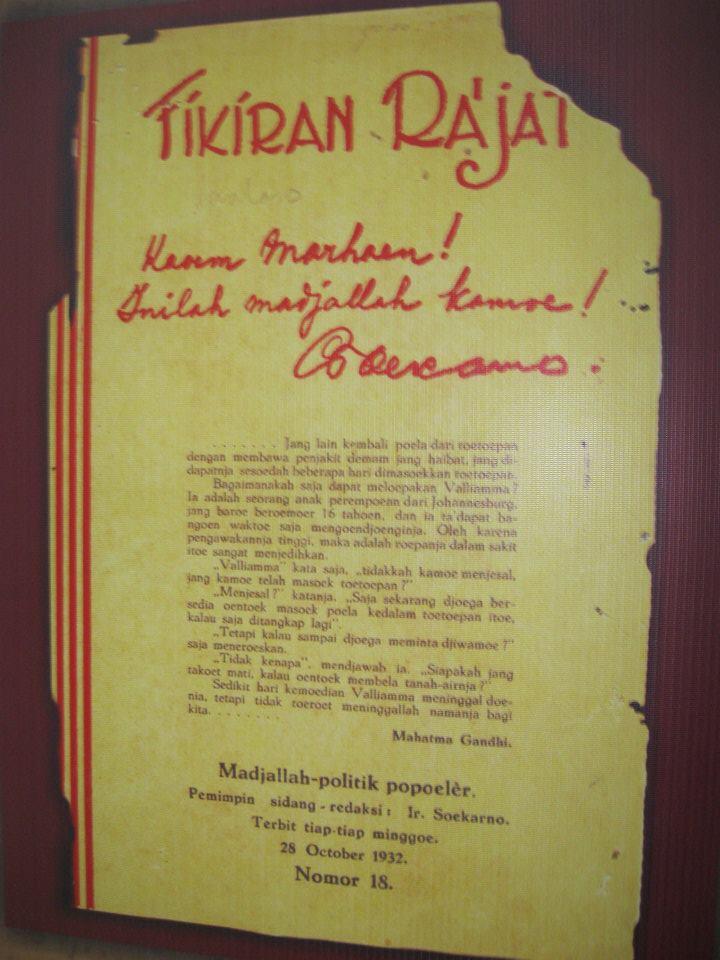 FIKIRAN RA'JAT
Kaoem Marhaen!
Inilah madjallah kamoe!
Soekarno.
. . . . . . . Jang lain kembali poela dari toetoepan
dengan membawa penjakit demam jang haibat, jang di-
dapatnja sesoedah beberapa hari dimasoekkan toetoepan.
Bagaimanakah saja dapat meloepakan Valliamma?
Ia adalah seorang anak perempoean dari Johannesburg,
jang baroe beroemoer 16 tahoen, dan ia ta'dapat ba-
ngoen waktoe saja mengoendjoenginja. Oleh karena
pengawakannja tinggi, maka adalah roepanja dalam sakit
itoe sangat menjedihkan.
„Valliamma" kata saja, „tidakkah kamoe menjesal,
jang kamoe telah masoek toetoepan?"
„Menjesal?" katanja. „Saja sekarang djoega ber-
sedia oentoek masoek poela kedalam toetoepan itoe,
kalau saja ditangkap lagi".
„Tetapi kalau sampai djoega meminta djiwamoe?"
saja meneroeskan.
„Tidak kenapa", mendjawab ia. „Siapakah jang
takoet mati, kalau oentoek membela tanah-airnja?"
Sedikit hari kemoedian Valliamma meninggal doe-
nia, tetapi tidak toeroet meninggallah namanja bagi
kita. . . . . . . .
Mahatma Gandhi.
Madjallah-politik popoelèr.
Pemimpin sidang-redaksi: Ir. Soekarno.
Terbit tiap-tiap minggoe.
28 October 1932.
Nomor 18.